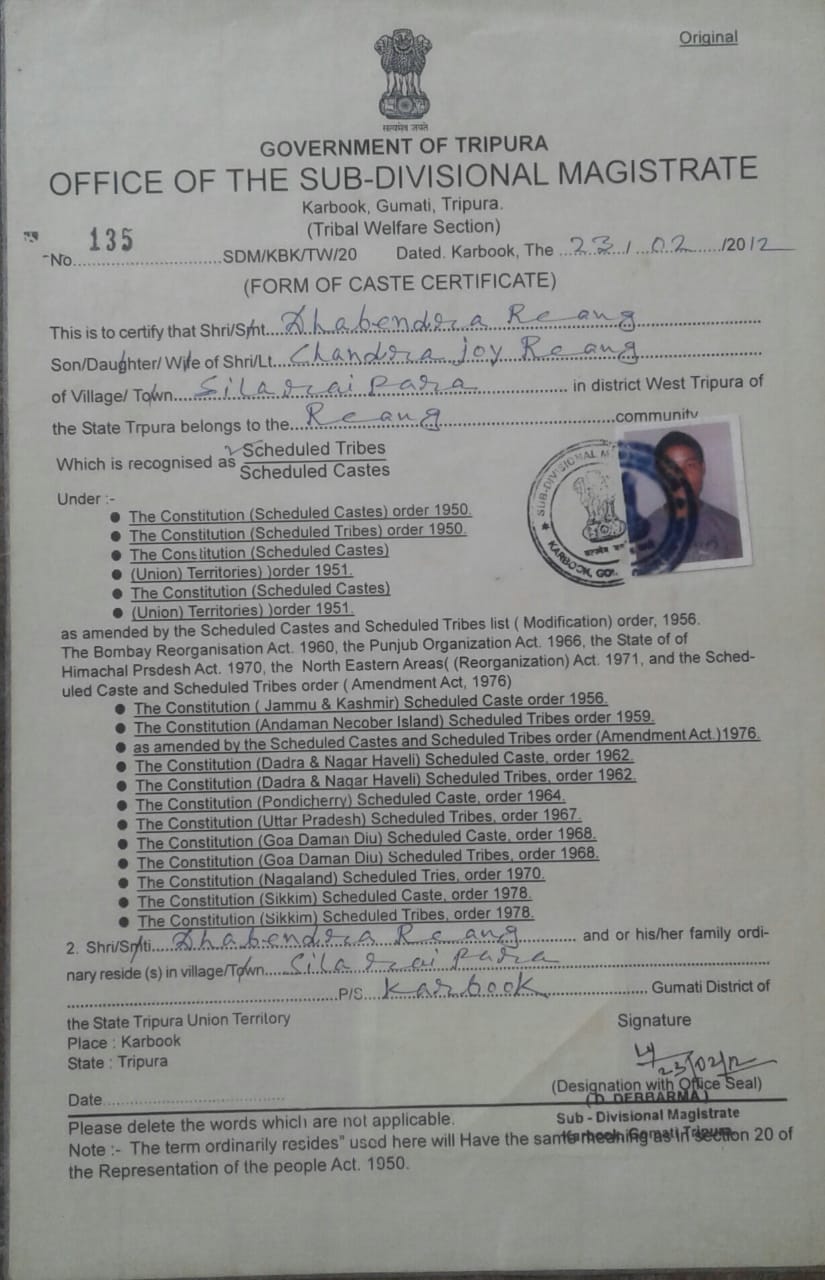 Original
सत्यमेव जयते
GOVERNMENT OF TRIPURA
OFFICE OF THE SUB-DIVISIONAL MAGISTRATE
Karbook, Gumati, Tripura.
(Tribal Welfare Section)
No. 135 SDM/KBK/TW/20 Dated. Karbook, The 23/02/2012
(FORM OF CASTE CERTIFICATE)
This is to certify that Shri/Smt. Dhabendra Reang
Son/Daughter/ Wife of Shri/Lt. Chandra joy Reang
of Village/ Town Silaraipara in district West Tripura of
the State Trpura belongs to the Reang community
Which is recognised as Scheduled Tribes
Scheduled Castes
SUB-DIVISIONAL M
KARBOOK, GO
Under :-
● The Constitution (Scheduled Castes) order 1950.
● The Constitution (Scheduled Tribes) order 1950.
● The Constitution (Scheduled Castes)
● (Union) Territories) )order 1951.
● The Constitution (Scheduled Castes)
● (Union) Territories) )order 1951.
as amended by the Scheduled Castes and Scheduled Tribes list ( Modification) order, 1956.
The Bombay Reorganisation Act. 1960, the Punjub Organization Act. 1966, the State of of
Himachal Prsdesh Act. 1970, the North Eastern Areas( (Reorganization) Act. 1971, and the Sched-
uled Caste and Scheduled Tribes order ( Amendment Act, 1976)
● The Constitution ( Jammu & Kashmir) Scheduled Caste order 1956.
● The Constitution (Andaman Necober Island) Scheduled Tribes order 1959.
● as amended by the Scheduled Castes and Scheduled Tribes order (Amendment Act.)1976.
● The Constitution (Dadra & Nagar Haveli) Scheduled Caste, order 1962.
● The Constitution (Dadra & Nagar Haveli) Scheduled Tribes, order 1962.
● The Constitution (Pondicherry) Scheduled Caste, order 1964.
● The Constitution (Uttar Pradesh) Scheduled Tribes, order 1967.
● The Constitution (Goa Daman Diu) Scheduled Caste, order 1968.
● The Constitution (Goa Daman Diu) Scheduled Tribes, order 1968.
● The Constitution (Nagaland) Scheduled Tries, order 1970.
● The Constitution (Sikkim) Scheduled Caste, order 1978.
● The Constitution (Sikkim) Scheduled Tribes, order 1978.
2. Shri/Smti. Dhabendra Reang and or his/her family ordi-
nary reside (s) in village/Town Silaraipara
P/S. Karbook Gumati District of
the State Tripura Union Territory
Place : Karbook
State : Tripura
Signature
23/02/12
(Designation with Office Seal)
(D. DEBBARMA)
Date
Sub - Divisional Magistrate
Karbook, Gomati Tripura
Please delete the words which are not applicable.
Note :- The term ordinarily resides" used here will Have the same meaning as in section 20 of
the Representation of the people Act. 1950.